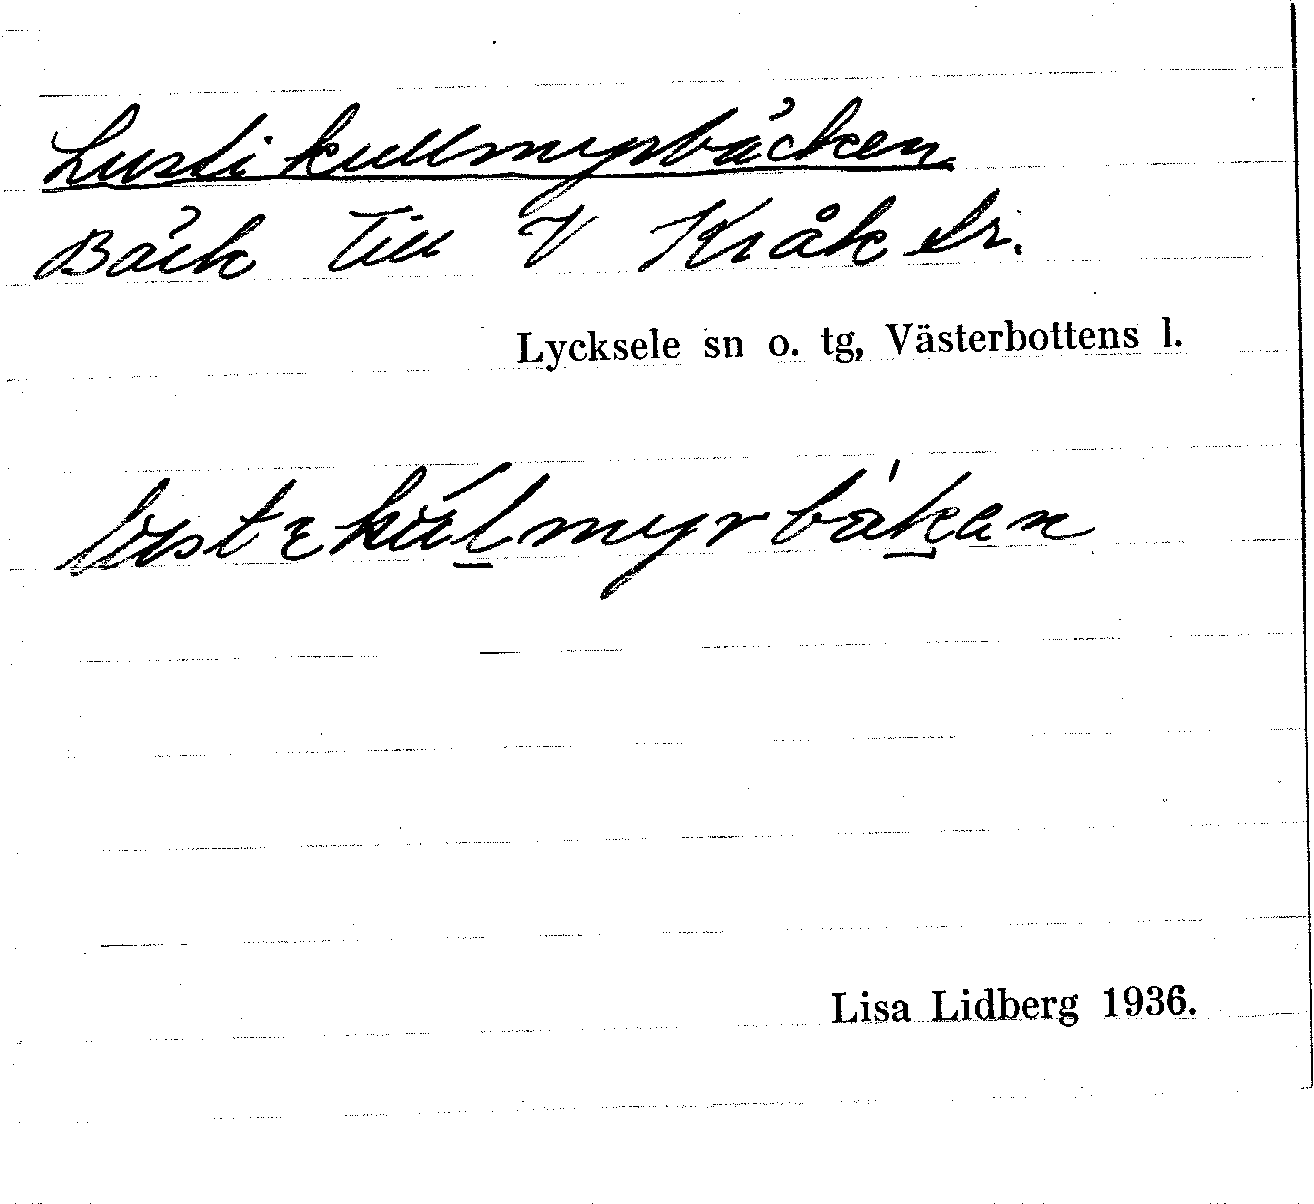 Lustikullmyrbäcken
Bäck till V Kråk
Lycksele sn o. tg, Västerbottens l.
Lisa Lidberg 1936.